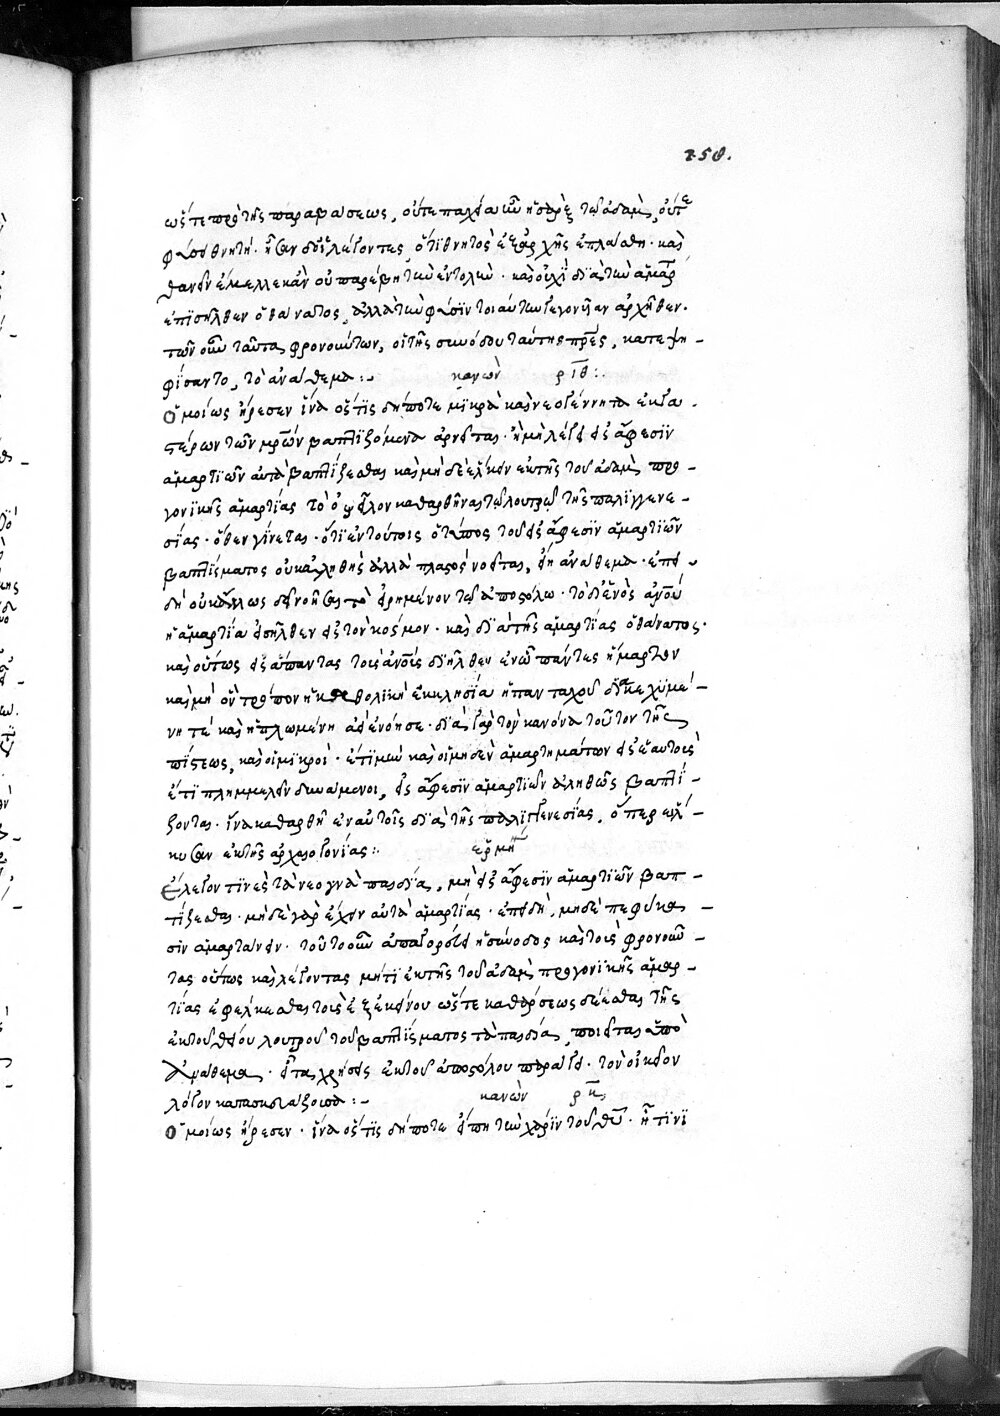 258.
ὥστε πρὸ τῆς παραβάσεως, οὔτε παχεῖα ἦν ἡ σὰρξ τῷ ἀδὰμ, οὔτε
θνητή. ἦσαν δὲ οἳ λέγοντες, ὅτι θνητὸς ἐξ ἀρχῆς ἐπλάσθη. καὶ
θανεῖν ἔμελλε κἂν οὐ παρέβη τὴν ἐντολήν. καὶ οὐχὶ διὰ τὴν ἁμαρτ
ἐπεισῆλθεν ὁ θάνατος, ἀλλὰ τὴν φύσιν τοιαύτην γεγονῆσαν ἀρχῆθεν.
τῶν οὖν ταῦτα φρονούντων, οἱ τῆς συνόδου ταύτης πρες, κατεψη-
φίσαντο, τὸ ἀνάθεμα :~ κανὼν ριθ :
Ὁμοίως ἤρεσεν ἵνα ὅστις δήποτε μικρὰ καὶ νεογέννητα ἐκ γα-
στέρων τῶν μρων βαπτιζόμενα ἀρνεῖται. ἢ μὴ λέγει εἰς ἄφεσιν
ἁμαρτιῶν αὐτὰ βαπτίζεσθαι καὶ μὴ δὲ ἕλκειν ἐκ τῆς τοῦ ἀδὰμ προ-
γονικῆς ἁμαρτίας τὸ ὀφεῖλον καθαρθῆναι τῷ λουτρῷ τῆς παλιγγενε-
σίας. ὅθεν γίνεται. ὅτι ἐν τούτοις ὁ τύπος τοῦ εἰς ἄφεσιν ἁμαρτιῶν
βαπτίσματος οὐκ ἀληθὴς ἀλλὰ πλαστὸς νοεῖται, εἴη ἀνάθεμα. ἐπει-
δὴ οὐκ ἄλλως δεῖ νοῆσαι τὸ εἰρημένον τῷ ἀποστόλῳ. τὸ δι ἑνὸς ἀνου
ἡ ἁμαρτία εἰσῆλθεν εἰς τὸν κόσμον. καὶ διὰ τῆς ἁμαρτίας ὁ θάνατος.
καὶ οὕτως εἰς ἅπαντας τοὺς ἀνους διῆλθεν ἐν ᾧ πάντες ἥμαρτον
καὶ μὴ ὃν τρόπον ἡ καθολικὴ ἐκκλησία ἡ πανταχοῦ διακεχυμέ-
νη τε καὶ ἡπλωμένη ἀεὶ ἐνόησε. διὰ γὰρ τὸν κανόνα τοῦτον τῆς
πίστεως, καὶ οἱ μικροὶ. ἔτι μὴν καὶ οἱ μηδὲν ἁμαρτημάτων εἰς ἑαυτοὺς
ἔτι πλημμελεῖν δυνάμενοι, εἰς ἄφεσιν ἁμαρτιῶν ἀληθῶς βαπτί-
ζονται. ἵνα καθαρθῇ ἐν αὐτοῖς διὰ τῆς παλιγγενεσίας, ὅπερ εἵλ-
κυσαν ἐκ τῆς ἀρχαιογονίας : ἑρμη
Ἔλεγον τινὲς τὰ νεογνὰ παιδία, μὴ εἰς ἄφεσιν ἁμαρτιῶν βαπ-
τίζεσθαι. μὴ δὲ γὰρ ἔχειν αὐτὰ ἁμαρτίας. ἐπειδὴ, μηδὲ πεφύκα-
σιν ἁμαρτάνειν. τοῦτο οὖν ἀπαγορεύει ἡ σύνοδος καὶ τοὺς φρονοῦν-
τας οὕτως καὶ λέγοντας μήτι ἐκ τῆς τοῦ ἀδὰμ προγονικῆς ἁμαρ-
τίας ἐφέλκεσθαι τοὺς ἐξ ἐκείνου ὥστε καθάρσεως δέεσθαι τῆς
ἐκ τοῦ θείου λουτροῦ τοῦ βαπτίσματος τὰ παιδία, ποιεῖται ὑπὸ
ἀνάθεμα. εἶτα χρῆσις ἐκ τοῦ ἀποστόλου παράγει. τὸν οἰκεῖον
λόγον κατασκευάζουσα :~ κανὼν ρκ
Ὁμοίως ἤρεσεν. ἵνα ὅστις δήποτε εἴπῃ τὴν χάριν τοῦ θυ. ᾗ τινι